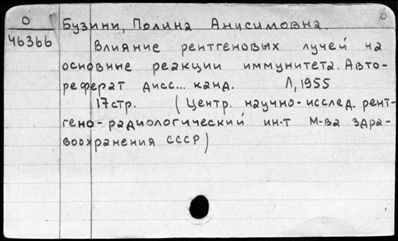 О
46366
Бузини, Полина Анисимовна.
Влияние рентгеновых лучей на
основные реакции иммунитета. Авто-
реферат дисс... канд. Л, 1955
17стр. (Центр. научно-исслед. рент-
гено-радиологический ин-т М-ва здра-
воохранения СССР)